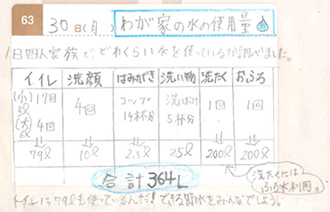 63
30日(月) わが家の水の使用量
1日四人家族で、どれくらい水を使っているか調べました。
トイレ 洗顔 はみがき 洗い物 洗たく おふろ
(小)17回 4回 コップ 洗いおけ 1回 1回
(大)4回 杯分 5杯分
79ℓ 10ℓ 2.5ℓ 25ℓ 200ℓ 200ℓ
合計364L
洗たくには
ふろ水利用。
トイレに79ℓも使っているんだ!できる節水をみんなでしよう。